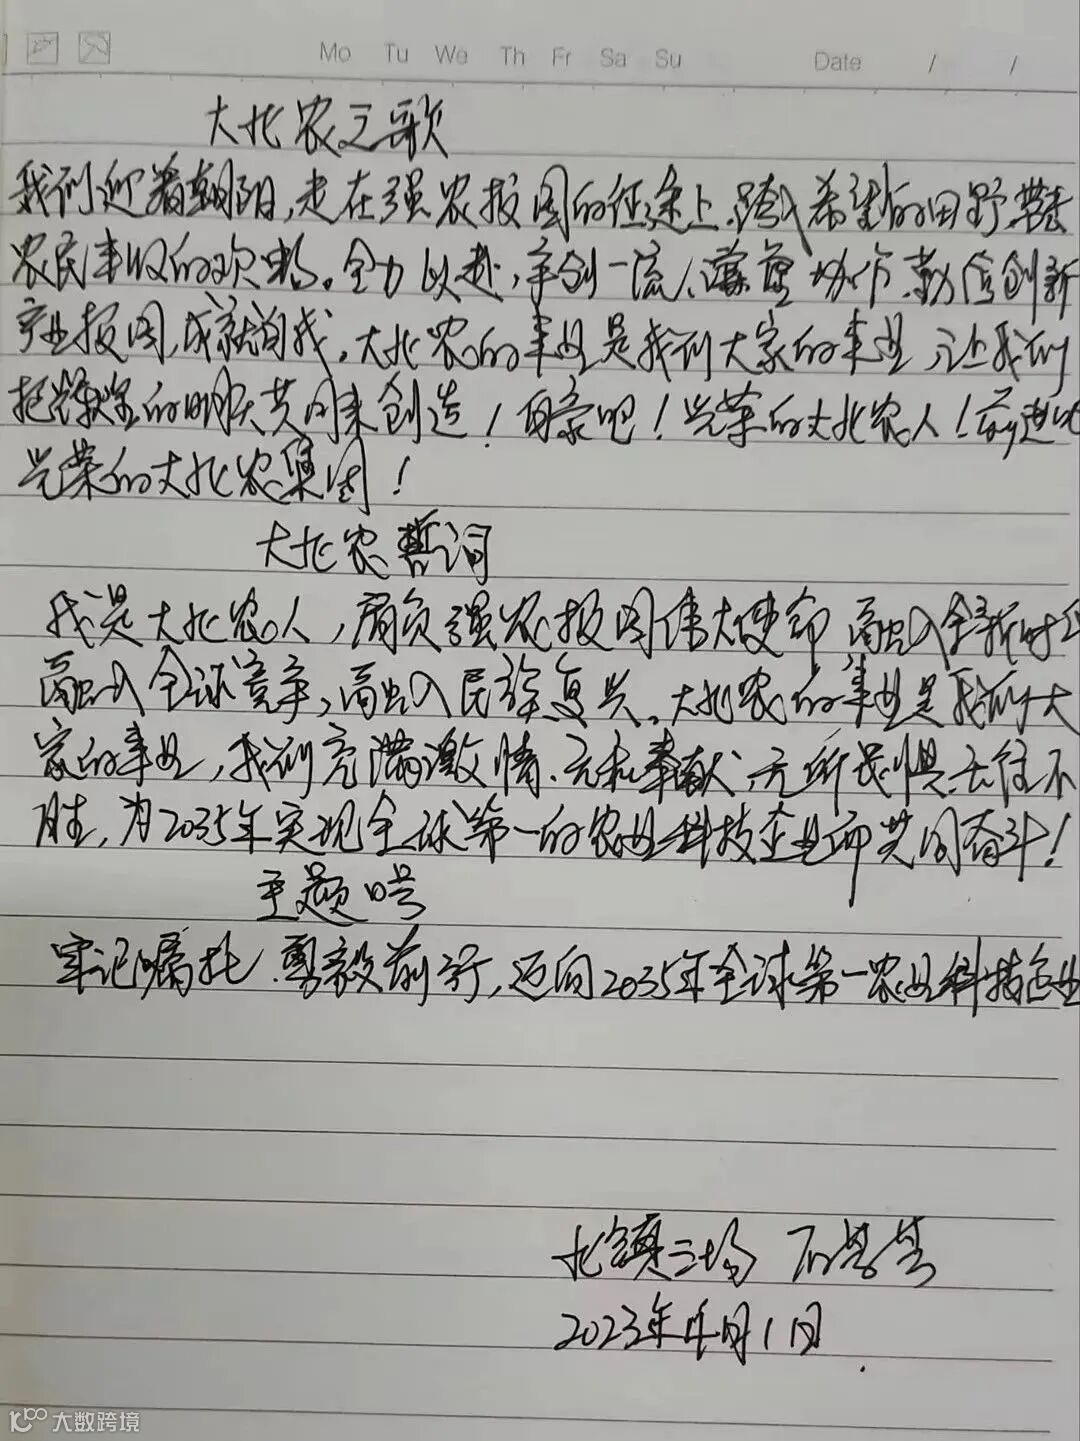 Mo Tu We Th Fr Sa Su Date / /
大北农之歌
我们迎着朝阳,走在强农报国的征途上.踏入希望的田野.带去
农民丰收的欢畅。全力以赴,争创一流、谦虚协作.勤信创新
产业报国,成就自我。大北农的事业是我们大家的事业,让我们
把辉煌的明天共同来创造!自豪吧!光荣的大北农人!前进吧
光荣的大北农集团!
大北农誓词
我是大北农人,肩负强农报国伟大使命 融入全新时代
融入全球竞争,融入民族复兴。大北农的事业是我们大
家的事业,我们充满激情、无私奉献、无所畏惧、无往不
胜,为2035年实现全球第一的农业科技企业而共同奋斗!
主题口号
牢记嘱托.勇毅前行,迈向2035年全球第一农业科技企业
北镇三场
2023年4月1日
大数跨境